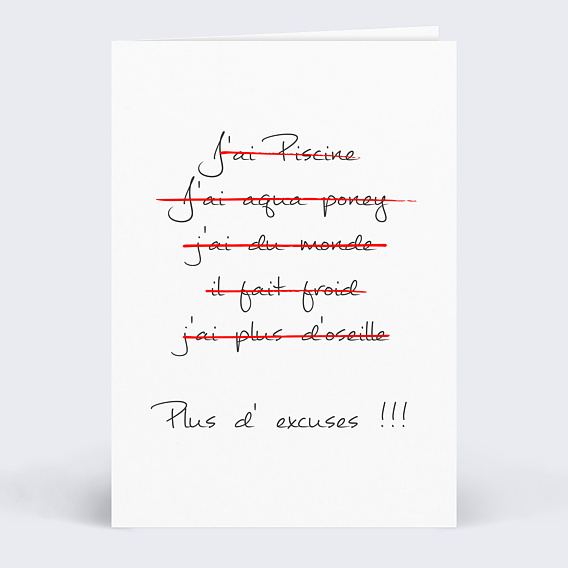 J'ai Piscine
J'ai aqua poney
j'ai du monde
il fait froid
j'ai plus d'oseille
Plus d' excuses !!!